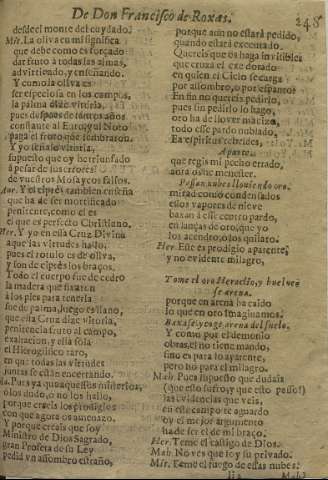 De Don Francisco de Roxas.
248
desde el monte del cuydado.
Mis. La oliva en mi significa
que debe como es forçado
dar fruto à todas las almas,
advirtiendo, y enseñando.
Y como la oliva es
ser especiosa en los campos,
la palma dize vitoria,
pues despues de tantos años
constante al Euro, y al Noto
paga el fruto que sembraron.
Y yo señalo vitoria,
supuesto que oy he triunfado
à pesar de sus errores
de vuestros Mosaycos falsos.
y el ciprès tambien enseña
que ha de ser mortificado
penitente, como el es
el que es perfecto Christiano.
Her. Y yo en esta Cruz Divina
aque las virtudes hallo,
pues el rotulo es de oliva,
y son de ciprès los braços.
Todo el cuerpo fue de cedro
la madera que fixaron
à los pies para tenerla
fue de palma, luego es llano,
que esta Cruz dize vitoria,
penitencia fruto al campo,
exaltacion, y ella sola
el Hieroglifico raro,
en que todas las virtudes
juntas se estàn encerrando.
Pues ya que aquestos misterios,
ò los dudo, ò no los hallo,
porque creais los prodigios
con que agora os amenazo.
Y porque creais que soy
Ministro de Dios Sagrado,
gran Profeta de su Ley
pedid un assombro estraño,
porque aun no estarà pedido,
quando estarà executado.
Quereis que os haga invisibles
que cruza el exe dorado
en quien el Cielo se carga
por assombro, o por espanto?
En fin no quereis pedirlo,
pues sin pedirlo lo hago,
oro ha de llover
todo esse pardo nublado,
Ea espiritus rebeldes,
Aparte.
que regis mi pecho errado,
aora os he menester.
Passan nubes lloviendo oro.
mirad como condensados
esos vapores de nieve
baxan à este centro pardo,
en lanças de oro, que yo
los acendro, o los quilato.
Her. Este es prodigio aparente,
y no evidente milagro,
Tome el oro Heraclio, y buelvase
se arena.
porque en arena ha caido
lo que en oro imaginamos.
Baxase, y coge arena del suelo.
Y como por el demonio
obras, el no tiene mando,
sino es para lo aparente,
pero no para el milagro.
Mah. Pues supuesto que dudais
(que esto sufro, y que esto passo!)
las evidencias que veis,
en este campo te aguardo
oy el mejor argumento
ha de ser el de mi braço.
Her. Teme el castigo de Dios.
Mah. No vès que soy su privado.
Mis. Teme el fuego de essas nubes.
Mah.